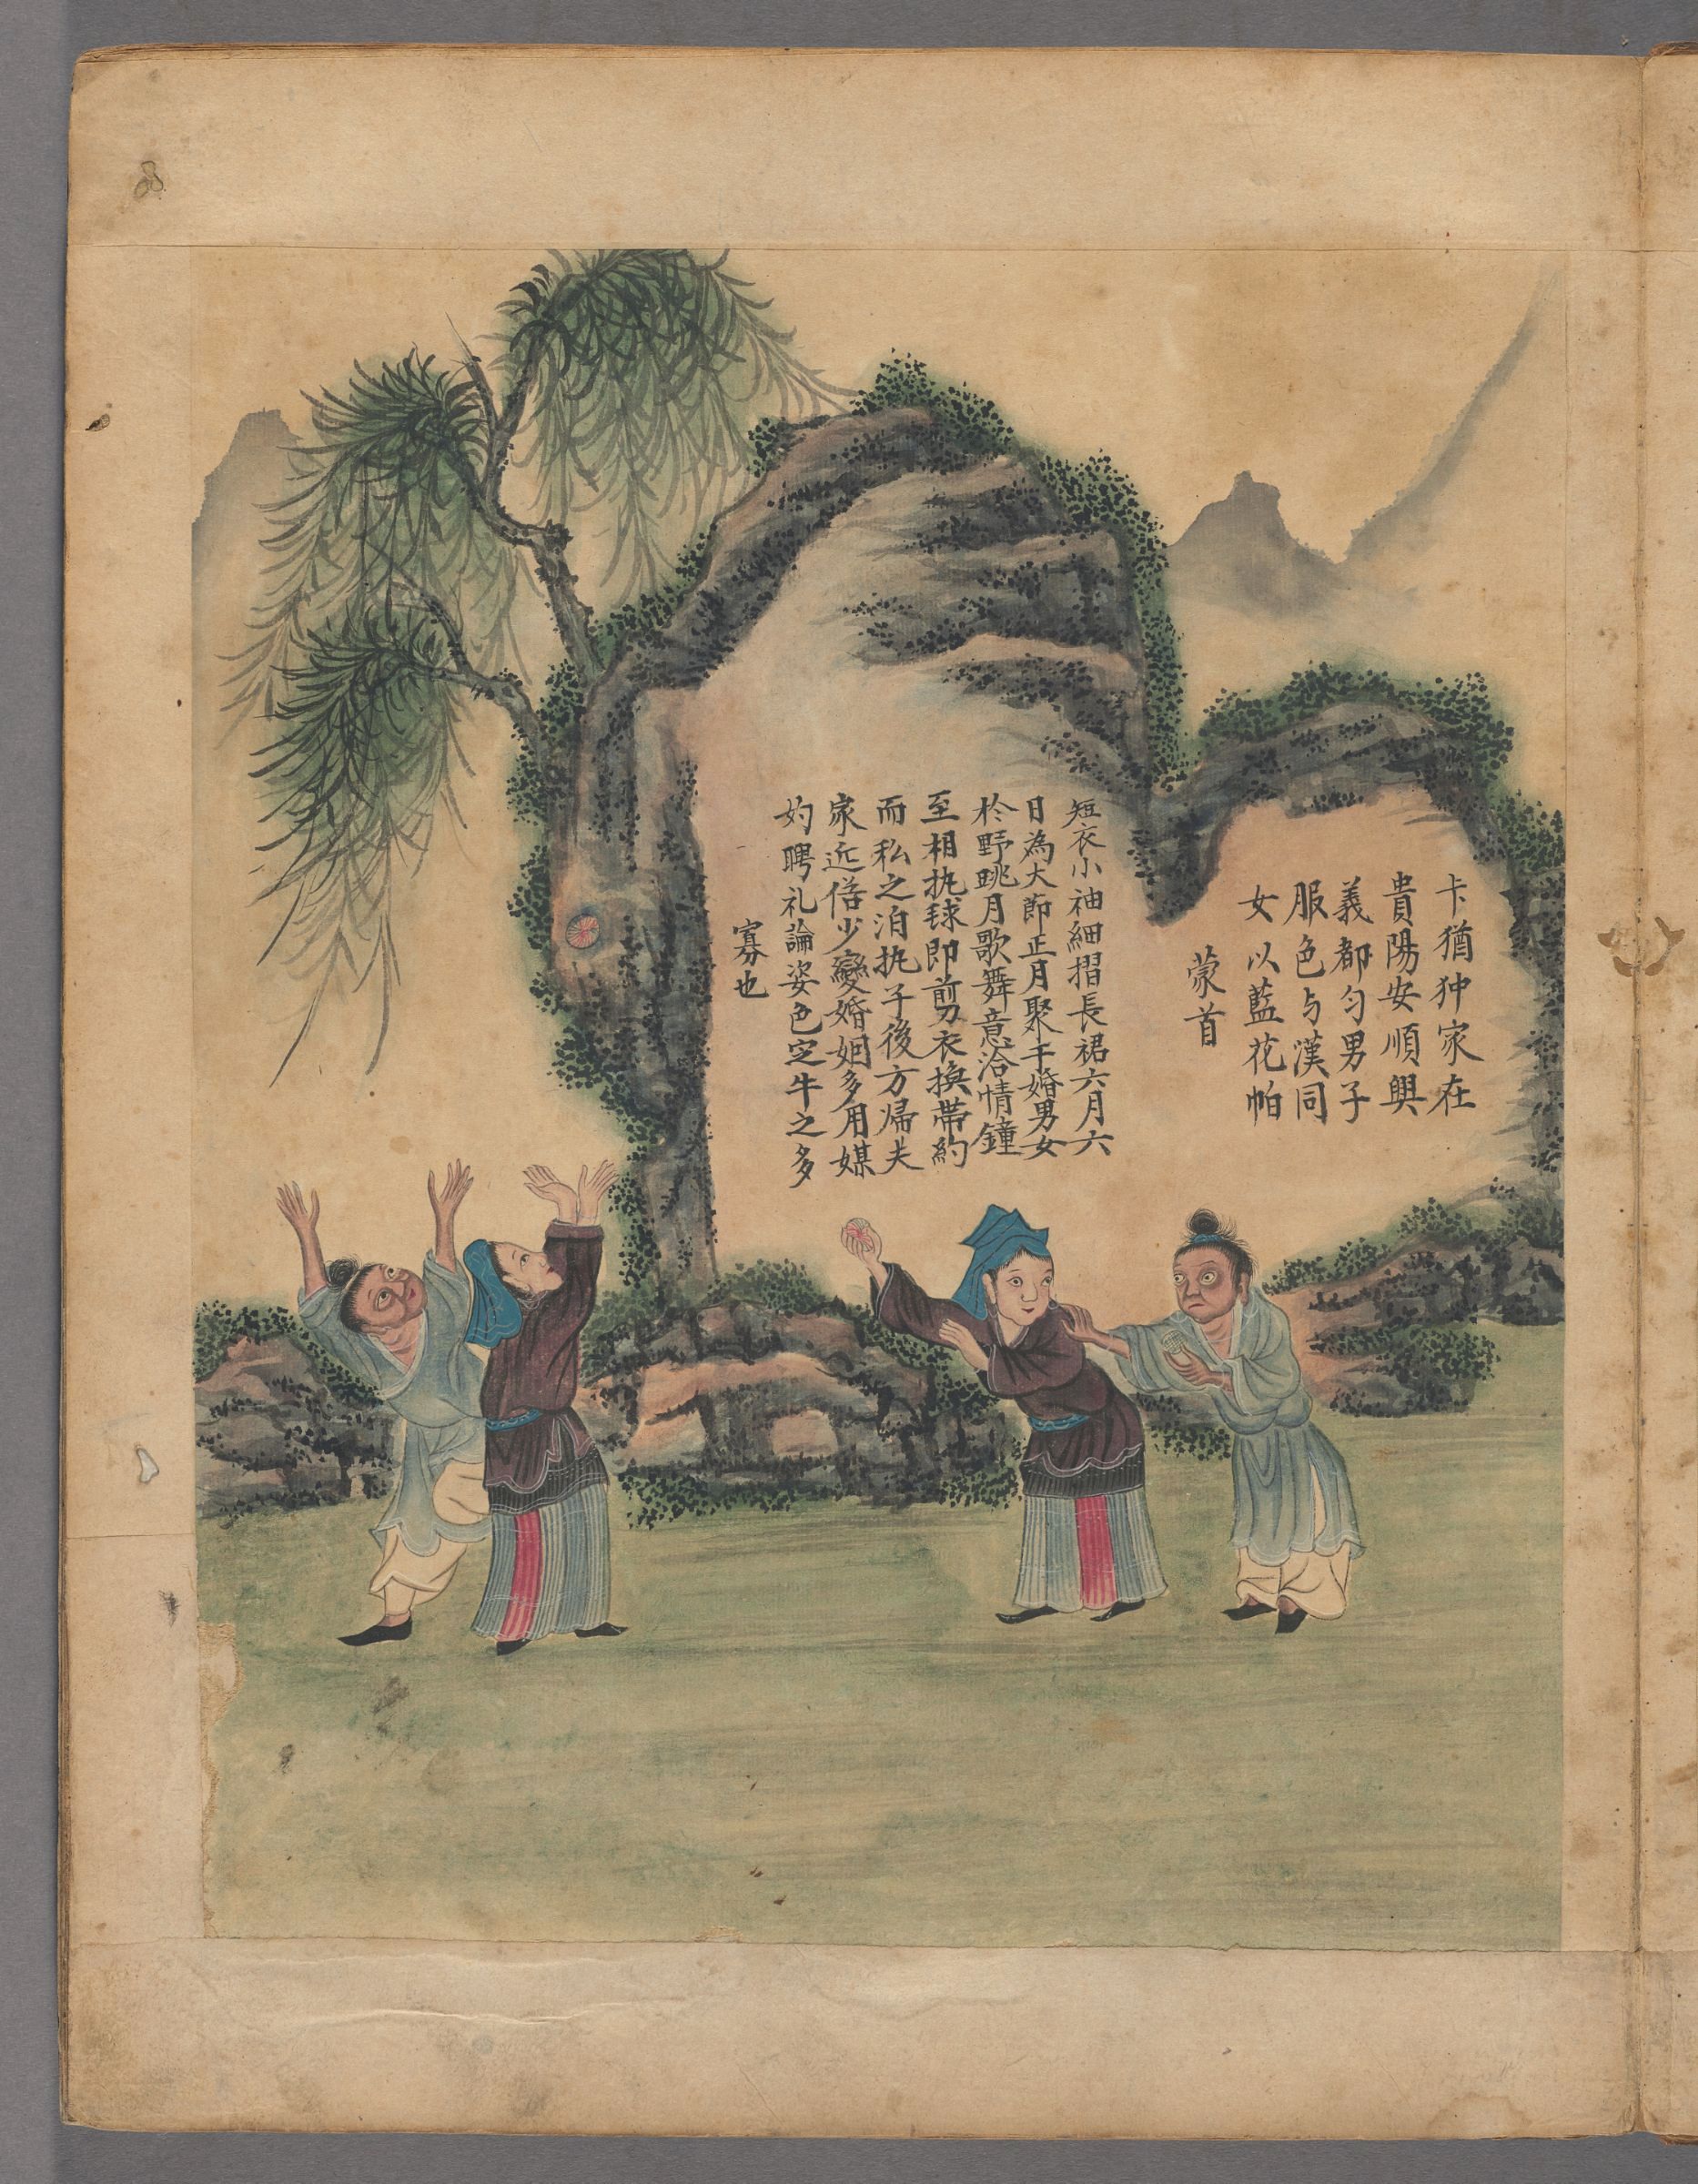 卡猶狆家在
貴陽安順興
義都匀男子
服色与漢同
女以藍花帕
蒙首
短衣小袖細摺長裙六月六
日為大節正月聚于婚男女
於野跳月歌舞意洽情鐘
至相执球即剪衣换帶約
而私之洎执子後方歸夫
家近俗少變婚姻多用媒
妁聘礼論姿色定牛之多
寡也